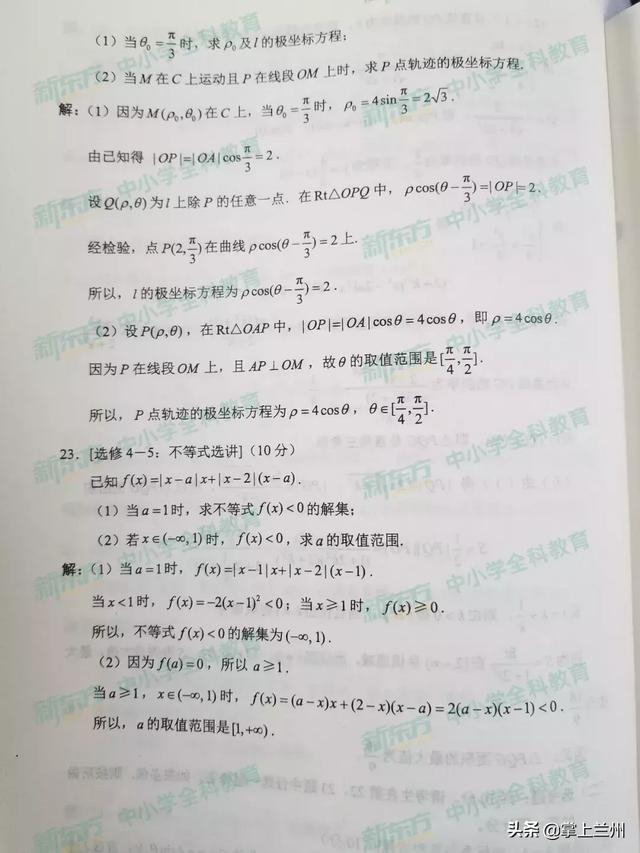 (1)当θ₀=π/3时,求ρ₀及l的极坐标方程;
(2)当M在C上运动且P在线段OM上时,求P点轨迹的极坐标方程.
解:(1)因为M(ρ₀,θ₀)在C上,当θ₀=π/3时,ρ₀=4sinπ/3=2√3.
由已知得 |OP|=|OA|cosπ/3=2.
设Q(ρ,θ)为l上除P的任意一点.在Rt△OPQ中,ρcos(θ-π/3)=|OP|=2.
经检验,点P(2,π/3)在曲线ρcos(θ-π/3)=2上.
所以,l的极坐标方程为ρcos(θ-π/3)=2.
(2)设P(ρ,θ),在Rt△OAP中,|OP|=|OA|cosθ=4cosθ,即ρ=4cosθ.
因为P在线段OM上,且AP⊥OM,故θ的取值范围是[π/4,π/2].
所以,P点轨迹的极坐标方程为ρ=4cosθ,θ∈[π/4,π/2].
23.[选修4-5:不等式选讲](10分)
已知f(x)=|x-a|x+|x-2|(x-a).
(1)当a=1时,求不等式f(x)<0的解集;
(2)若x∈(-∞,1)时,f(x)<0,求a的取值范围.
解:(1)当a=1时,f(x)=|x-1|x+|x-2|(x-1).
当x<1时,f(x)=-2(x-1)²<0;当x≥1时,f(x)≥0.
所以,不等式f(x)<0的解集为(-∞,1).
(2)因为f(a)=0,所以a≥1.
当a≥1,x∈(-∞,1)时,f(x)=(a-x)x+(2-x)(x-a)=2(a-x)(x-1)<0.
所以,a的取值范围是[1,+∞).
新东方 中小学全科教育
头条 @掌上兰州